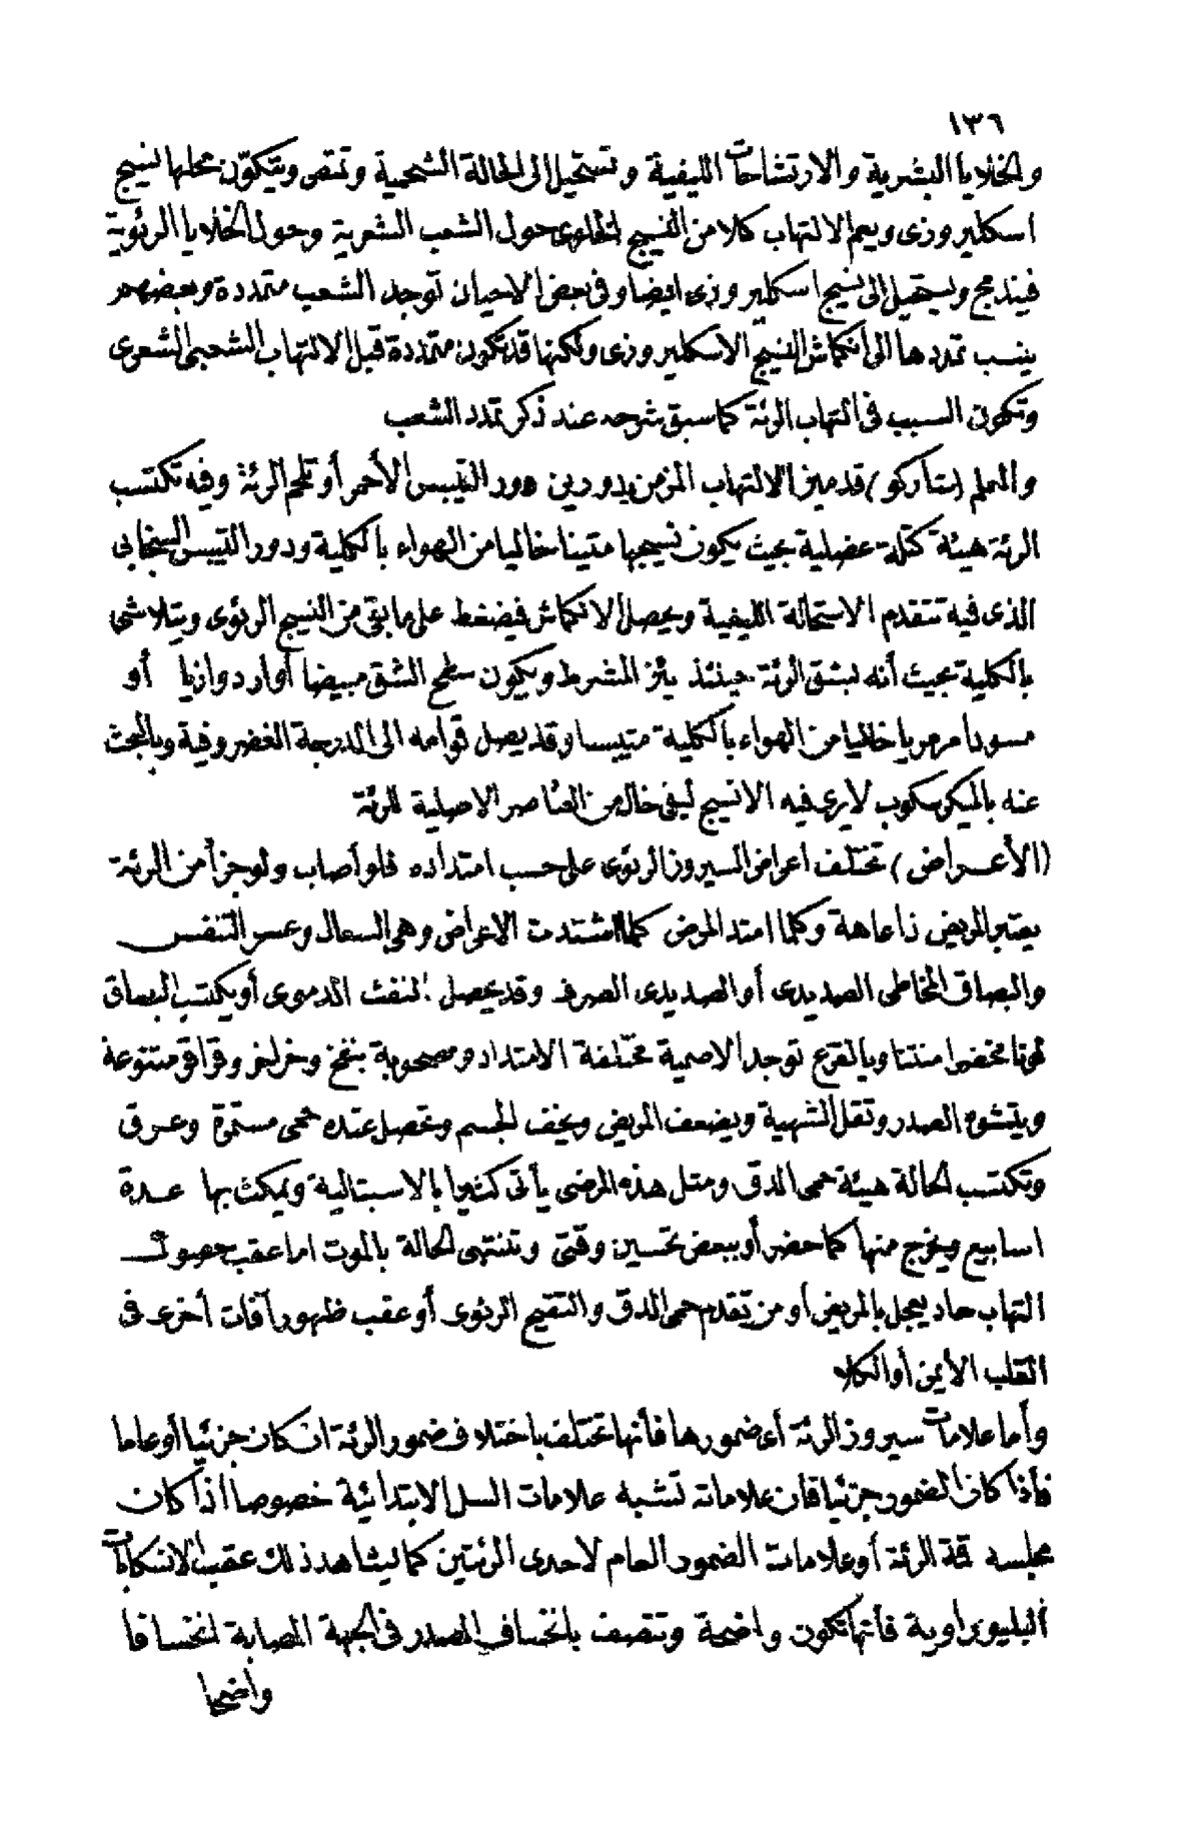 ١٣٦
والخلايا البشرية والارتشاحات الليفية وتستحيل الى الحالة الشحمية وتمتص ويتكوّن محلها نسيج
اسكليروزى ويعم الالتهاب كلا من النسيج الخلوى حول الشعب الشعرية وحول الخلايا الرئوية
فيندمج ويستحيل الى نسيج اسكليروزى ايضا وفى بعض الاحيان توجد الشعب متمددة وبعضهم
ينسب تمددها الى انكماش النسيج الاسكليروزى ولكنها قد تكون متمددة قبل الالتهاب الشعبى الشعرى
وتكون السبب فى التهاب الرئة كما سبق شرحه عند ذكر تمدد الشعب
والمعلم (ستاركو) قد ميز الالتهاب المزمن بدورين دور التيبس الأحمر أو تلحم الرئة وفيه تكتسب
الرئة هيئة كتلة عضلية بحيث يكون نسيجها متينا خاليا من الهواء بالكلية ودور التيبس السنجابى
الذى فيه تتقدم الاستحالة الليفية ويحصل الانكماش فيضغط على ما بقى من النسيج الرئوى ويتلاشى
بالكلية بحيث أنه لبشق الرئة حينئذ يئز المشرط ويكون سطح الشق مبيضا أو اردوازيا أو
مسودا مرمريا خاليا من الهواء بالكلية متيبسا وقد يصل قوامه الى الدرجة الغضروفية وبالبحث
عنه بالميكرسكوب لا يرى فيه الا نسيج ليفى خال من العناصر الاصلية للرئة
(الأعراض) تختلف اعراض السيروز الرئوى على حسب امتداده فلو أصاب ولو جزأ من الرئة
يعتبر المريض ذا عاهة وكلما امتد المرض كلما اشتدت الاعراض وهى السعال وعسر التنفس
والبصاق المخاطى الصديدى أو الصديدى الصرف وقد يحصل النفث الدموى أو يكتسب البصاق
لونا مخضرا منتنا وبالقرع توجد الاصمية مختلفة الامتداد ومصحوبة بنفخ وخراخر وقراقر متنوعة
ويتشوه الصدر وتقل الشهية ويضعف المريض وينحف الجسم وتحصل عنده حمى مستمرة وعرق
وتكتسب الحالة هيئة حمى الدق ومثل هذه المرضى يأتى كثيرا بالاسبتالية ويمكث بها عدة
اسابيع ويخرج منها كما حضر أو ببعض تحسين وقتى وتنتهى الحالة بالموت اما عقب حصول
التهاب حاد يعجل بالمريض أو من تقدم حمى الدق والتقيح الرئوى أو عقب ظهور آفات أخرى فى
القلب الأيمن أو الكلا
وأما علامات سيروز الرئة أى ضمورها فأنها تختلف باختلاف ضمور الرئة ان كان جزئيا أو عاما
فأذا كان الضمور جزئيا فان علاماته تشبه علامات السل الابتدائية خصوصا اذا كان
مجلسه قمة الرئة أو علامات الضمور العام لاحدى الرئتين كما يشاهد ذلك عقب الانسكابات
البليوراوية فأنها تكون واضحة وتتصف بانخساف الصدر فى الجهة المصابة انخسافا
واضحا